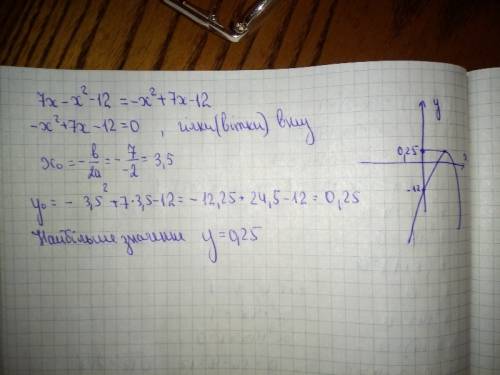 7x-x²-12 = -x²+7x-12
-x²+7x-12=0 , гілки(вітки) вниз
x₀ = -b/2a = -7/-2 = 3,5
y₀ = - 3,5² +7·3,5-12 = - 12,25 + 24,5 -12 = 0,25
Найбільше значення y = 0,25
y
x
0,25
-12